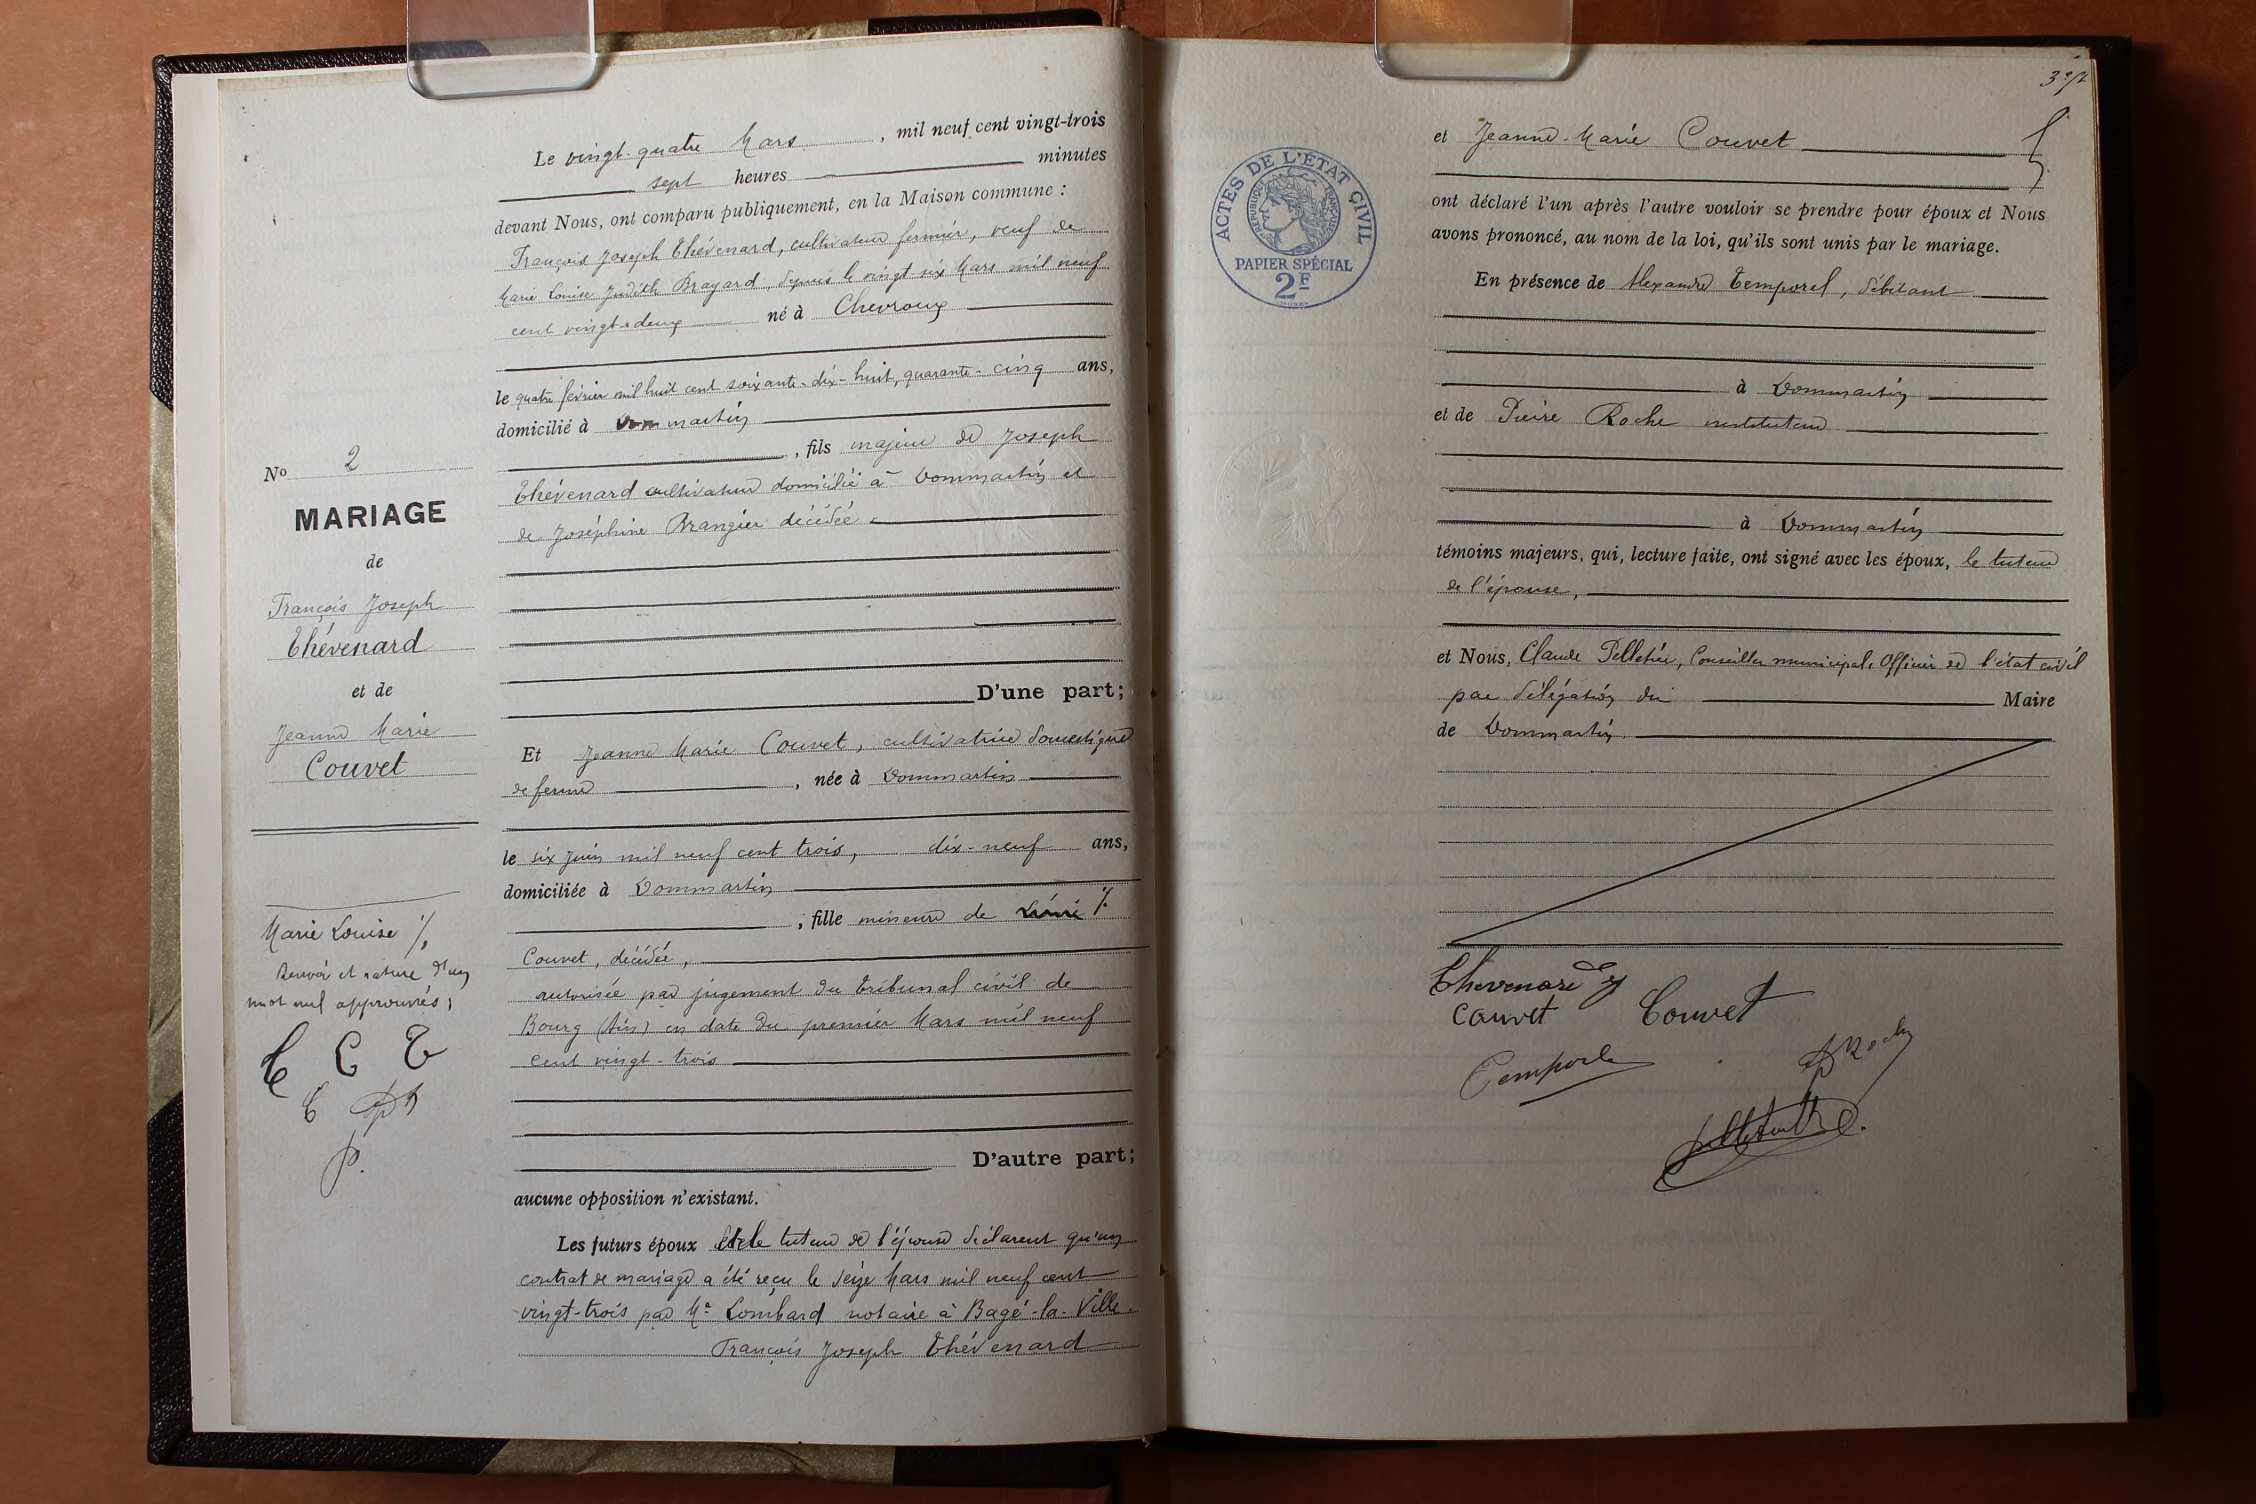 Le vingt-quatre Mars, mil neuf cent vingt-trois
sept heures minutes
devant Nous, ont comparu publiquement, en la Maison commune :
François Joseph Thévenard, cultivateur fermier, veuf de
Marie Louise Judith Brayard, depuis le vingt-six Mars mil neuf
cent vingt-deux né à Chevroux
le quatre février mil huit cent soixante-dix-huit, quarante-cinq ans,
domicilié à Dommartin
, fils majeur de Joseph
Thévenard cultivateur domicilié à Dommartin et
de Joséphine Brangier décédée
D'une part;
Et Jeanne Marie Couvet, cultivatrice domestique
de ferme, née à Dommartin
le six juin mil neuf cent trois, dix-neuf ans,
domiciliée à Dommartin
; fille mineure de
Couvet, décédée,
autorisée par jugement du tribunal civil de
Bourg (Ain) en date du premier Mars mil neuf
cent vingt-trois
D'autre part;
aucune opposition n'existant.
Les futurs époux et le tuteur de l'épouse déclarent qu'un
contrat de mariage a été reçu le seize Mars mil neuf cent
vingt-trois par Me Lombard notaire à Bagé-la-Ville.
François Joseph Thévenard
No 2
MARIAGE
de
François Joseph
Thévenard
et de
Jeanne Marie
Couvet
Marie Louise /.
Renvoi et rature d'un
mot nul approuvés;
T C T
T PR
P.
et Jeanne-Marie Couvet
ont déclaré l'un après l'autre vouloir se prendre pour époux et Nous
avons prononcé, au nom de la loi, qu'ils sont unis par le mariage.
En présence de Alexandre Temporel, débitant
à Dommartin
et de Pierre Roche instituteur
à Dommartin
témoins majeurs, qui, lecture faite, ont signé avec les époux, le tuteur
de l'épouse,
et Nous, Claude Pelletier, Conseiller municipal, Officier de l'état civil
par délégation du Maire
de Dommartin
Thevenard
Couvet Couvet
Temporel
P Roche
ACTES DE L'ÉTAT CIVIL
RÉPUBLIQUE FRANÇAISE
PAPIER SPÉCIAL
2F